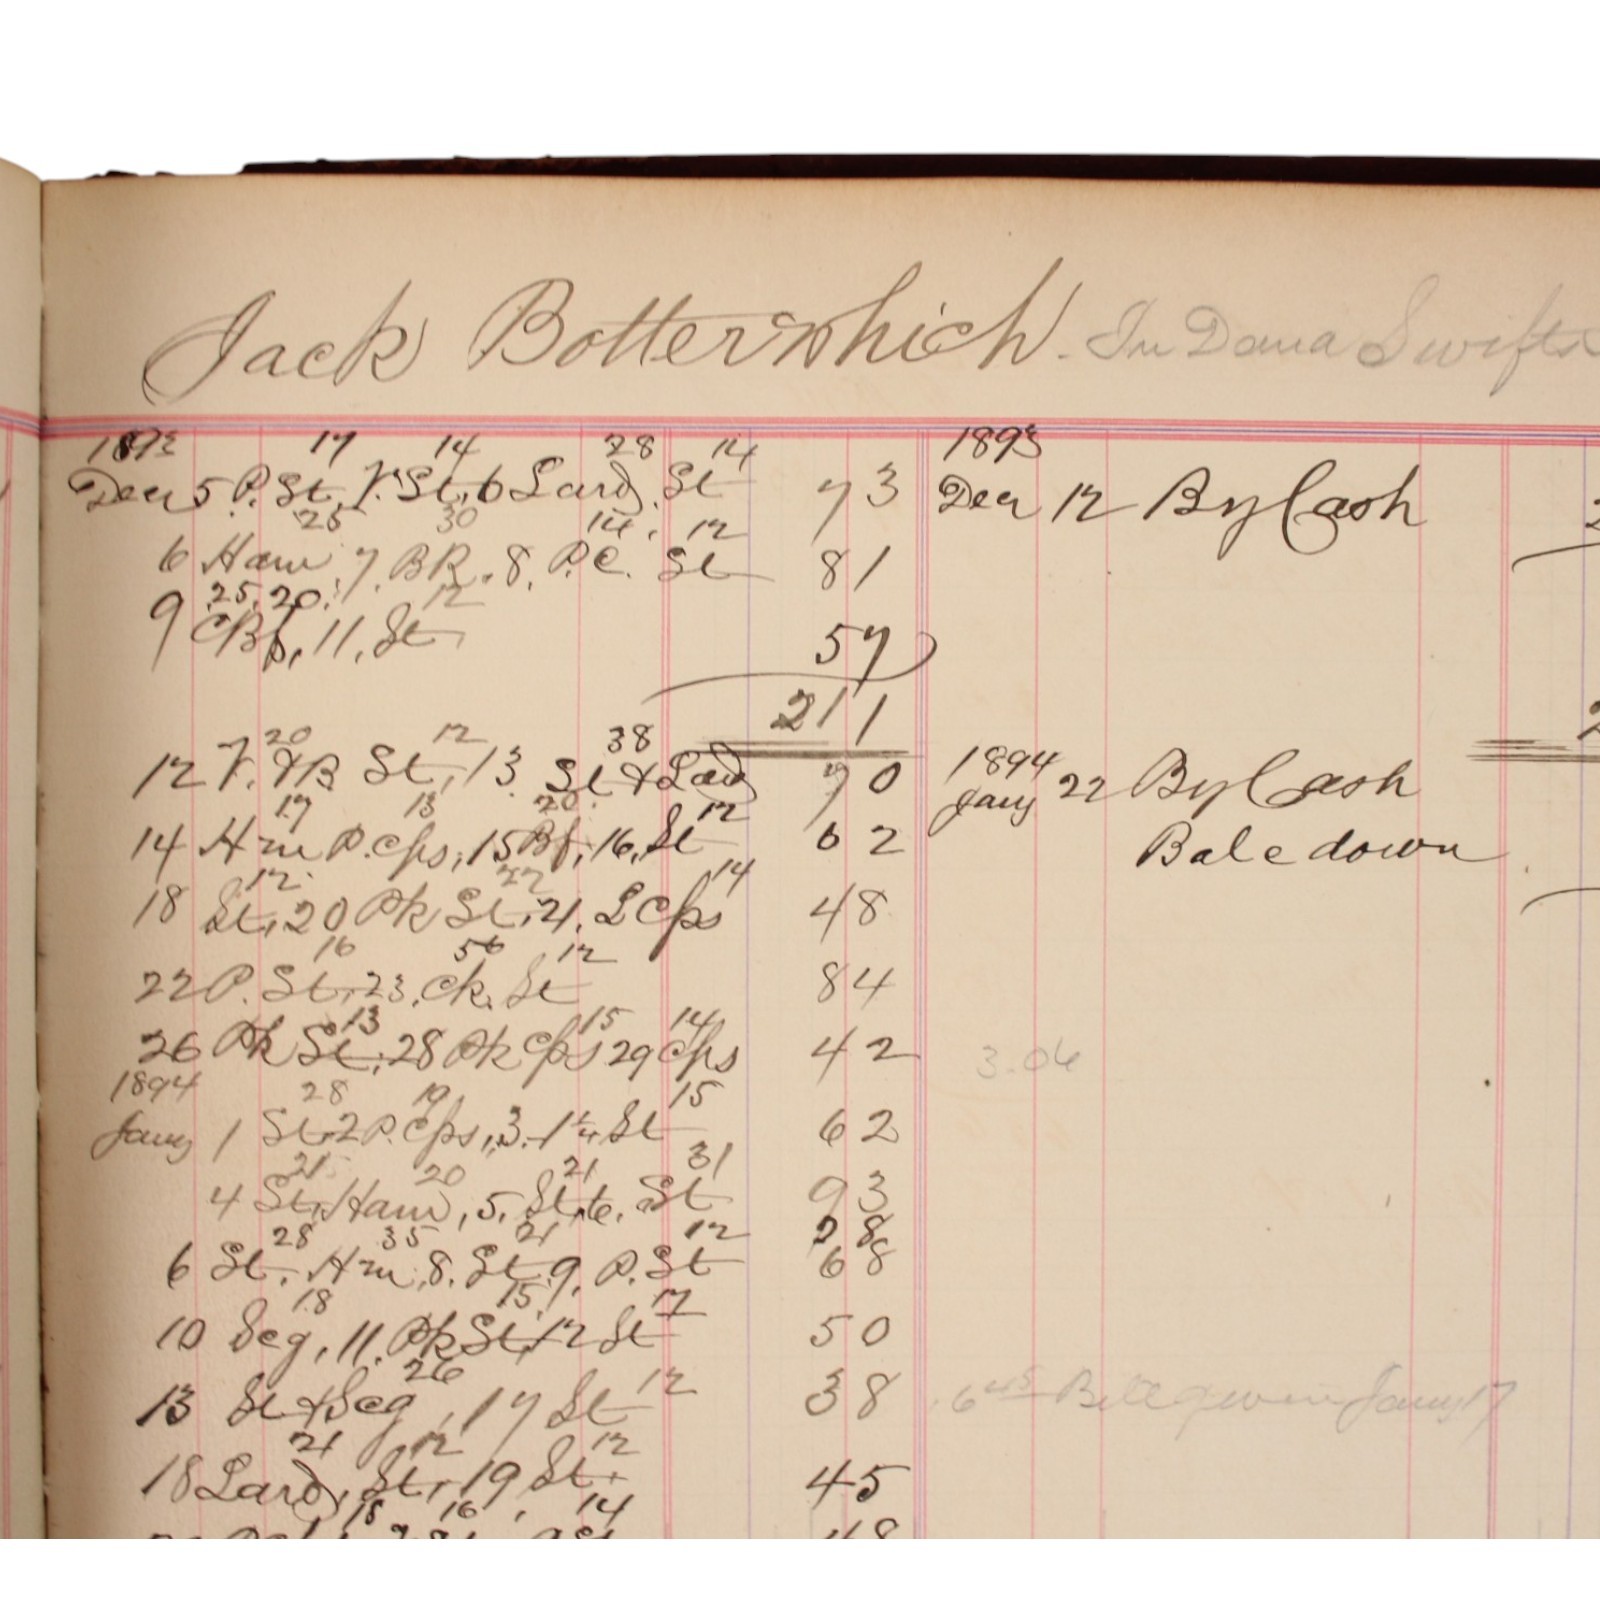 Jack Botterwhich. In Dana Swifts
1893 17 14 28 14
Decr 5 P. St, V. St, 6 Lard. St 73
25 30 14. 12
6 Ham 7. BR. 8. P.C. St 81
25. 20. 12
9 CBf, 11, St 57
211
20 12 38
12 V. & B St, 13. St & Lard 70
17 13 20 12
14 Hm P. Cps, 15 Bf, 16, St 62
12. 22 14
18 St, 20 Pk St, 21, L Cps 48
16 56 12
22 P. St, 23, Ck. St 84
13 15 14
26 Pk St, 28 Pk Cps 29 Cps 42
1894 28 19 15
Jany 1 St, 2 P. Cps, 3. St 62
21 20 21 31
4 St, Ham, 5, St, 6. St 93
28 35 21 12 28
6 St, Hm, 8. St 9, P. St 68
18 15 17
10 Seg, 11. Pk St, 12 St 50
26 12
13 St & Seg, 17 St 38
21 12 12
18 Lard, St, 19 St. 45
18 16 14
48
1893
Decr 12 By Cash
1894
Jany 22 By Cash
Bale down
3.06
6 45 Bill given Jany 17